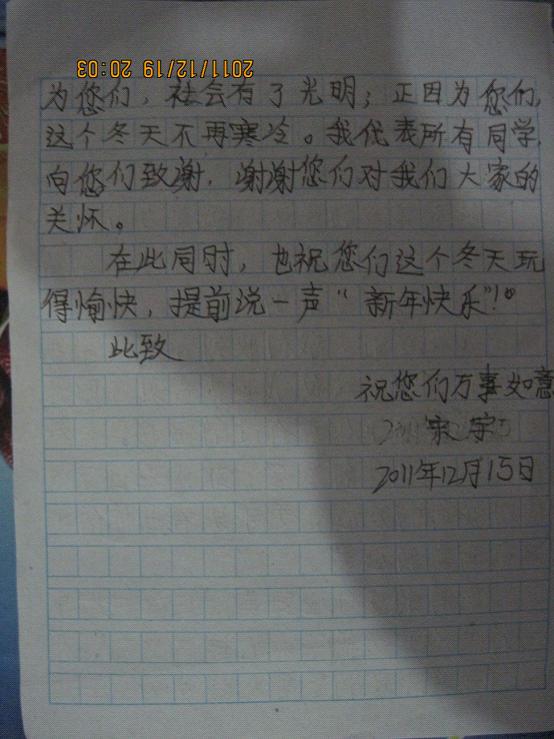 2011/12/19 20:03
为您们，社会有了光明；正因为您们，
这个冬天不再寒冷。我代表所有同学，
向您们致谢，谢谢您们对我们大家的
关怀。
在此同时，也祝您们这个冬天玩
得愉快，提前说一声“新年快乐”！。
此致
祝您们万事如意
宋宇
2011年12月15日